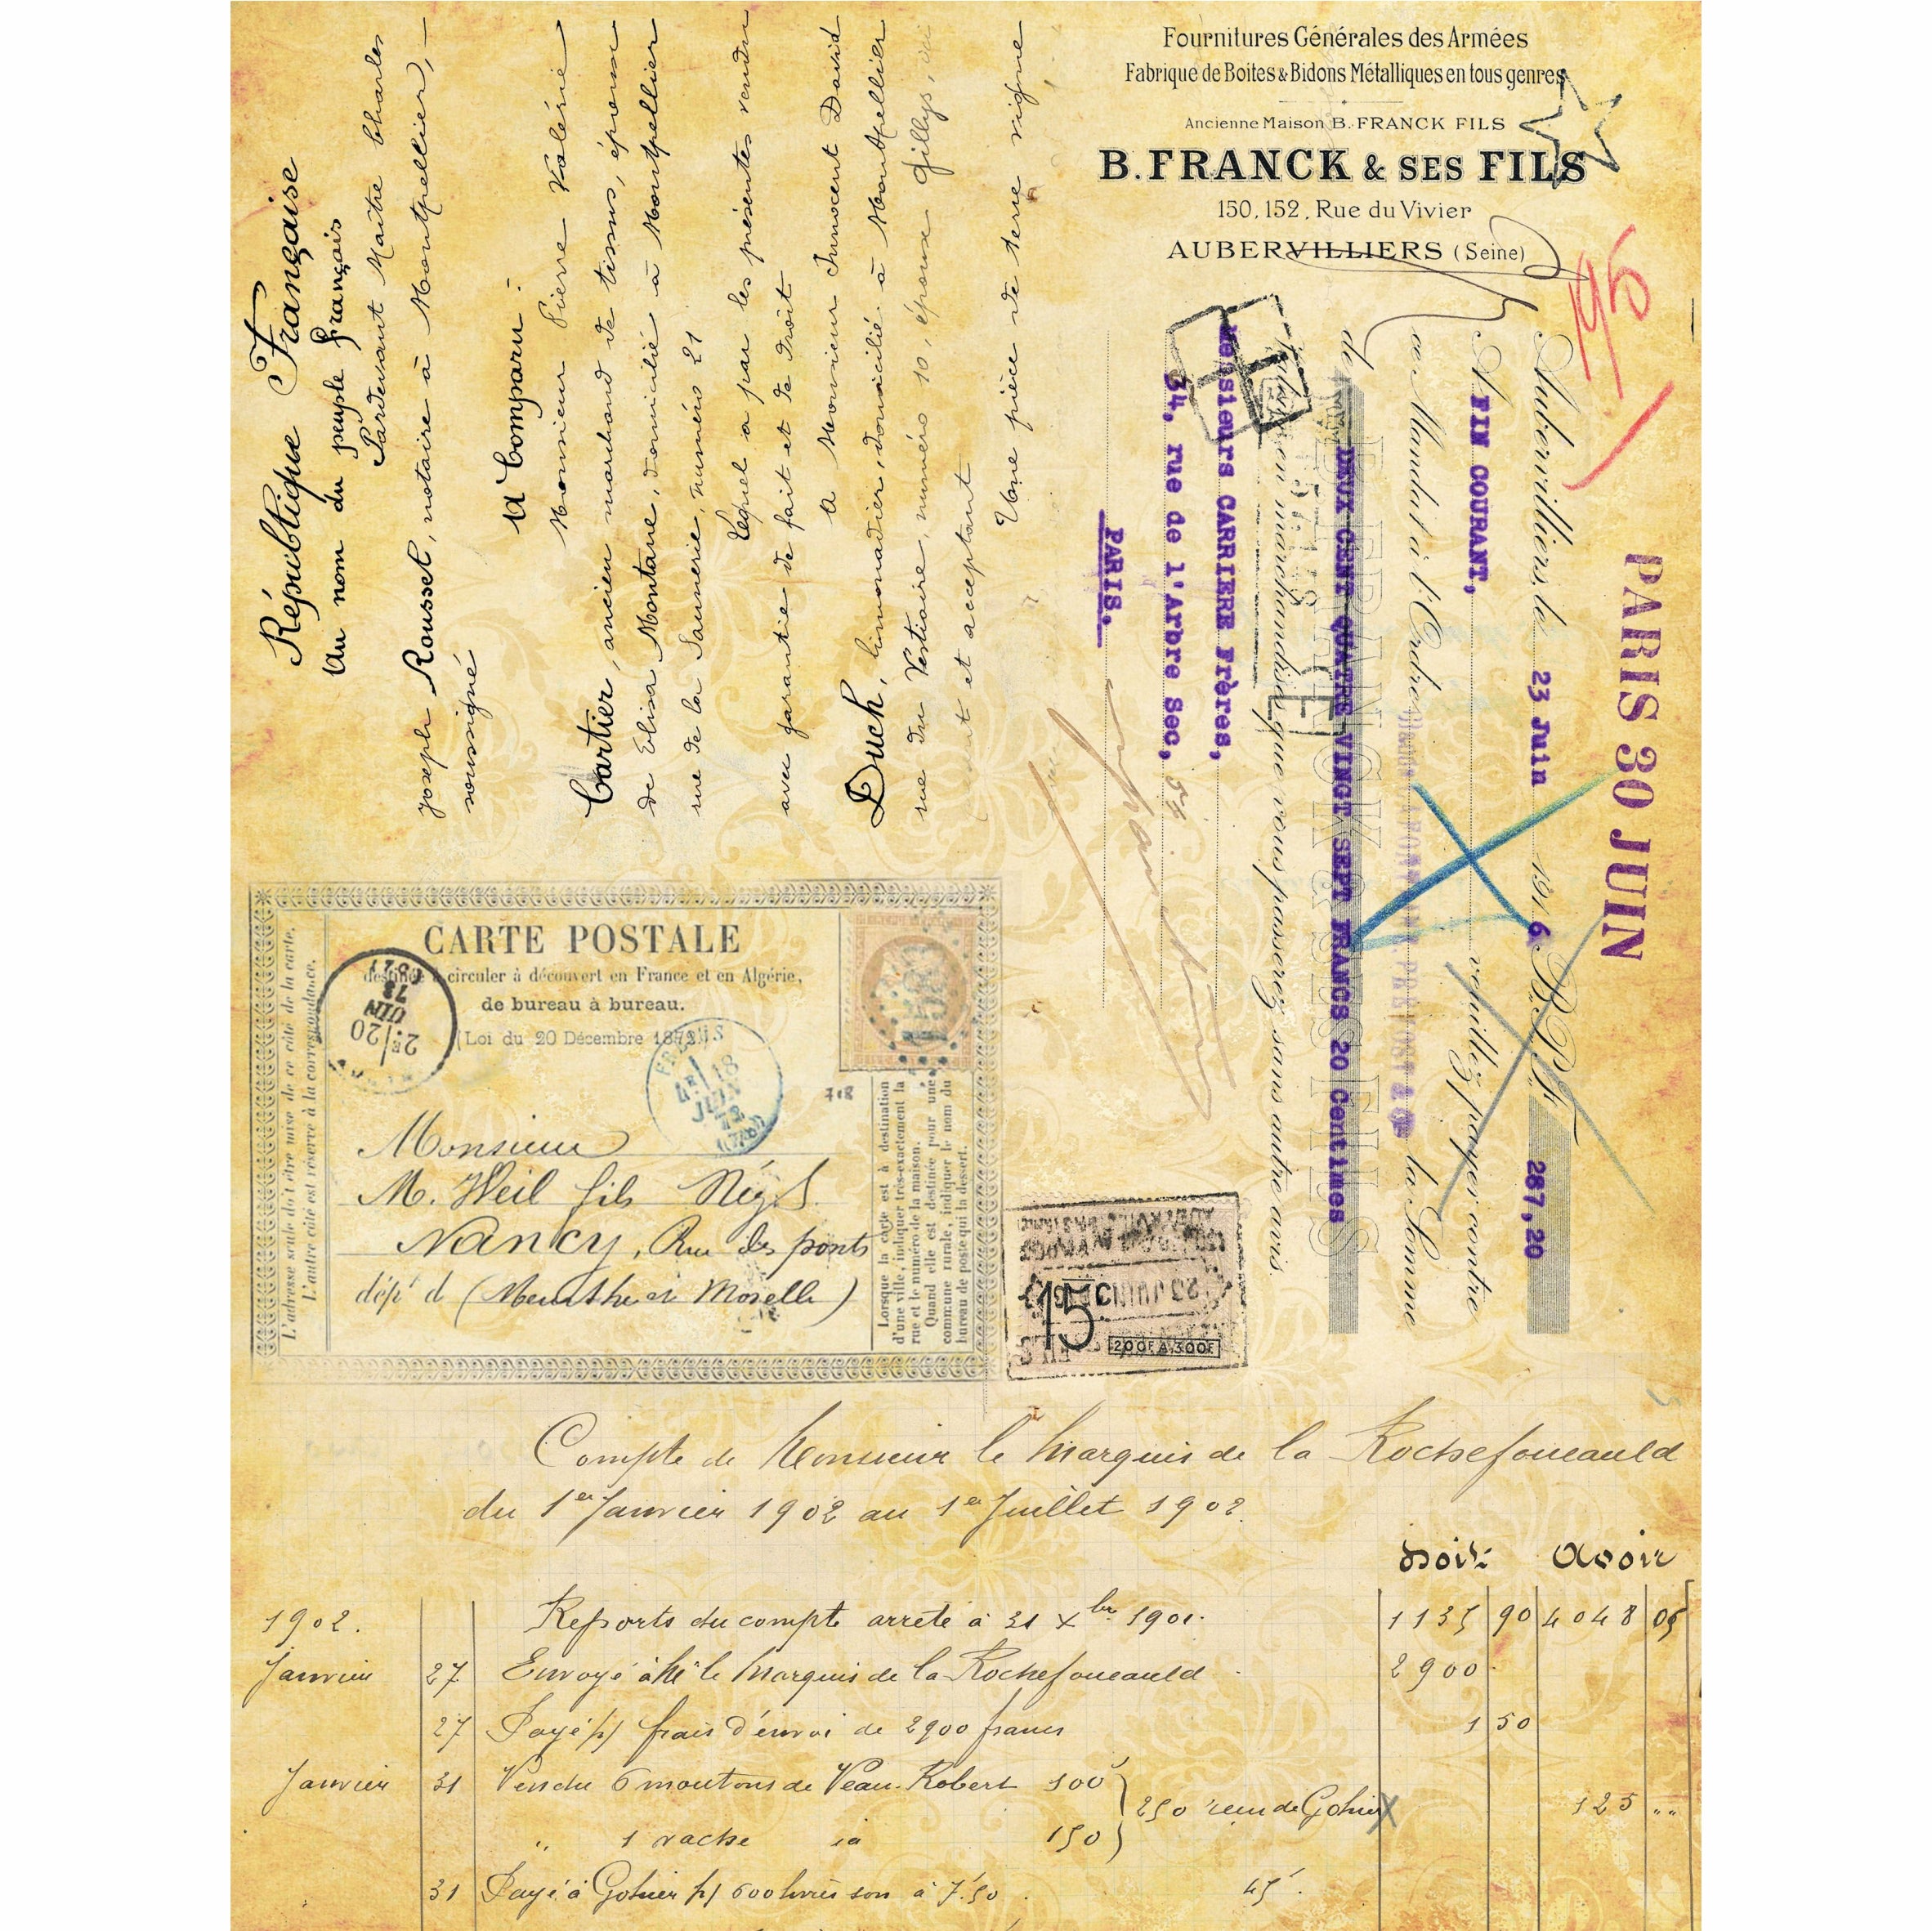 République Française
Au nom du peuple français
Pardevant Maître Charles
Joseph Rousset, notaire à Montpellier,
soussigné
A Comparu:
Monsieur Pierre Valérie
Cartier, ancien marchand de tissus, époux
de Elisa Montane, domicilié à Montpellier
rue de la Saunerie, numéro 21
Lequel a par les présentes vendu
avec garantie de fait et de droit
A Monsieur Innocent David
Duch, limonadier, domicilié à Montpellier
rue du Vestiaire, numéro 10, épouse Gillys, ici
présent et acceptant
Une pièce de terre vigne
Fournitures Générales des Armées
Fabrique de Boites & Bidons Métalliques en tous genres
Ancienne Maison B. FRANCK FILS
B. FRANCK & SES FILS
150, 152, Rue du Vivier
AUBERVILLIERS (Seine)
PARIS 30 JUIN
Aubervilliers, le 23 Juin 1916 B.P.F. 287,20
A FIN COURANT, veuillez payer contre
ce Mandat à l'Ordre la Somme
de DEUX CENT QUATRE VINGT SEPT FRANCS 20 Centimes
B. FRANCK & SES FILS
valeur en marchandises que vous passerez sans autre avis.
Messieurs CARRIERE Frères,
34, rue de l'Arbre Sec,
PARIS.
CARTE POSTALE
destinée à circuler à découvert en France et en Algérie,
de bureau à bureau.
Loi du 20 Décembre 1872
L'adresse seule doit être mise de ce côté de la carte.
L'autre côté est réservé à la correspondance.
2E 20
JUIN
73
FREJUS
18
JUIN
73
1583
718
Monsieur
M. Weil fils Négt
Nancy, Rue des ponts
dépt d (Meurthe et Moselle)
Lorsque la carte est à destination
d'une ville, indiquer très-exactement la
rue et le numéro de la maison.
Quand elle est destinée pour une
commune rurale, indiquer le nom du
bureau de poste qui la dessert.
23 JUIN
15 C
200F A 300F
Compte de Monsieur le Marquis de la Rochefoucauld
du 1er Janvier 1902 au 1er Juillet 1902.
Doit Avoir
1902. Reports du compte arreté à 31 Xbre 1901. 1135 90 4048 05
Janvier 27 Envoyé à Mr le Marquis de la Rochefoucauld 2900
27 Payé p/ frais d'envoi de 2900 francs 1 50
Janvier 31 Vendu 6 moutons de Veau-Robert 100
250 reçu de Gohier 125 „„
„ 1 vache id 150
31 Payé à Gohier p/ 600 livres son à 7.50 45